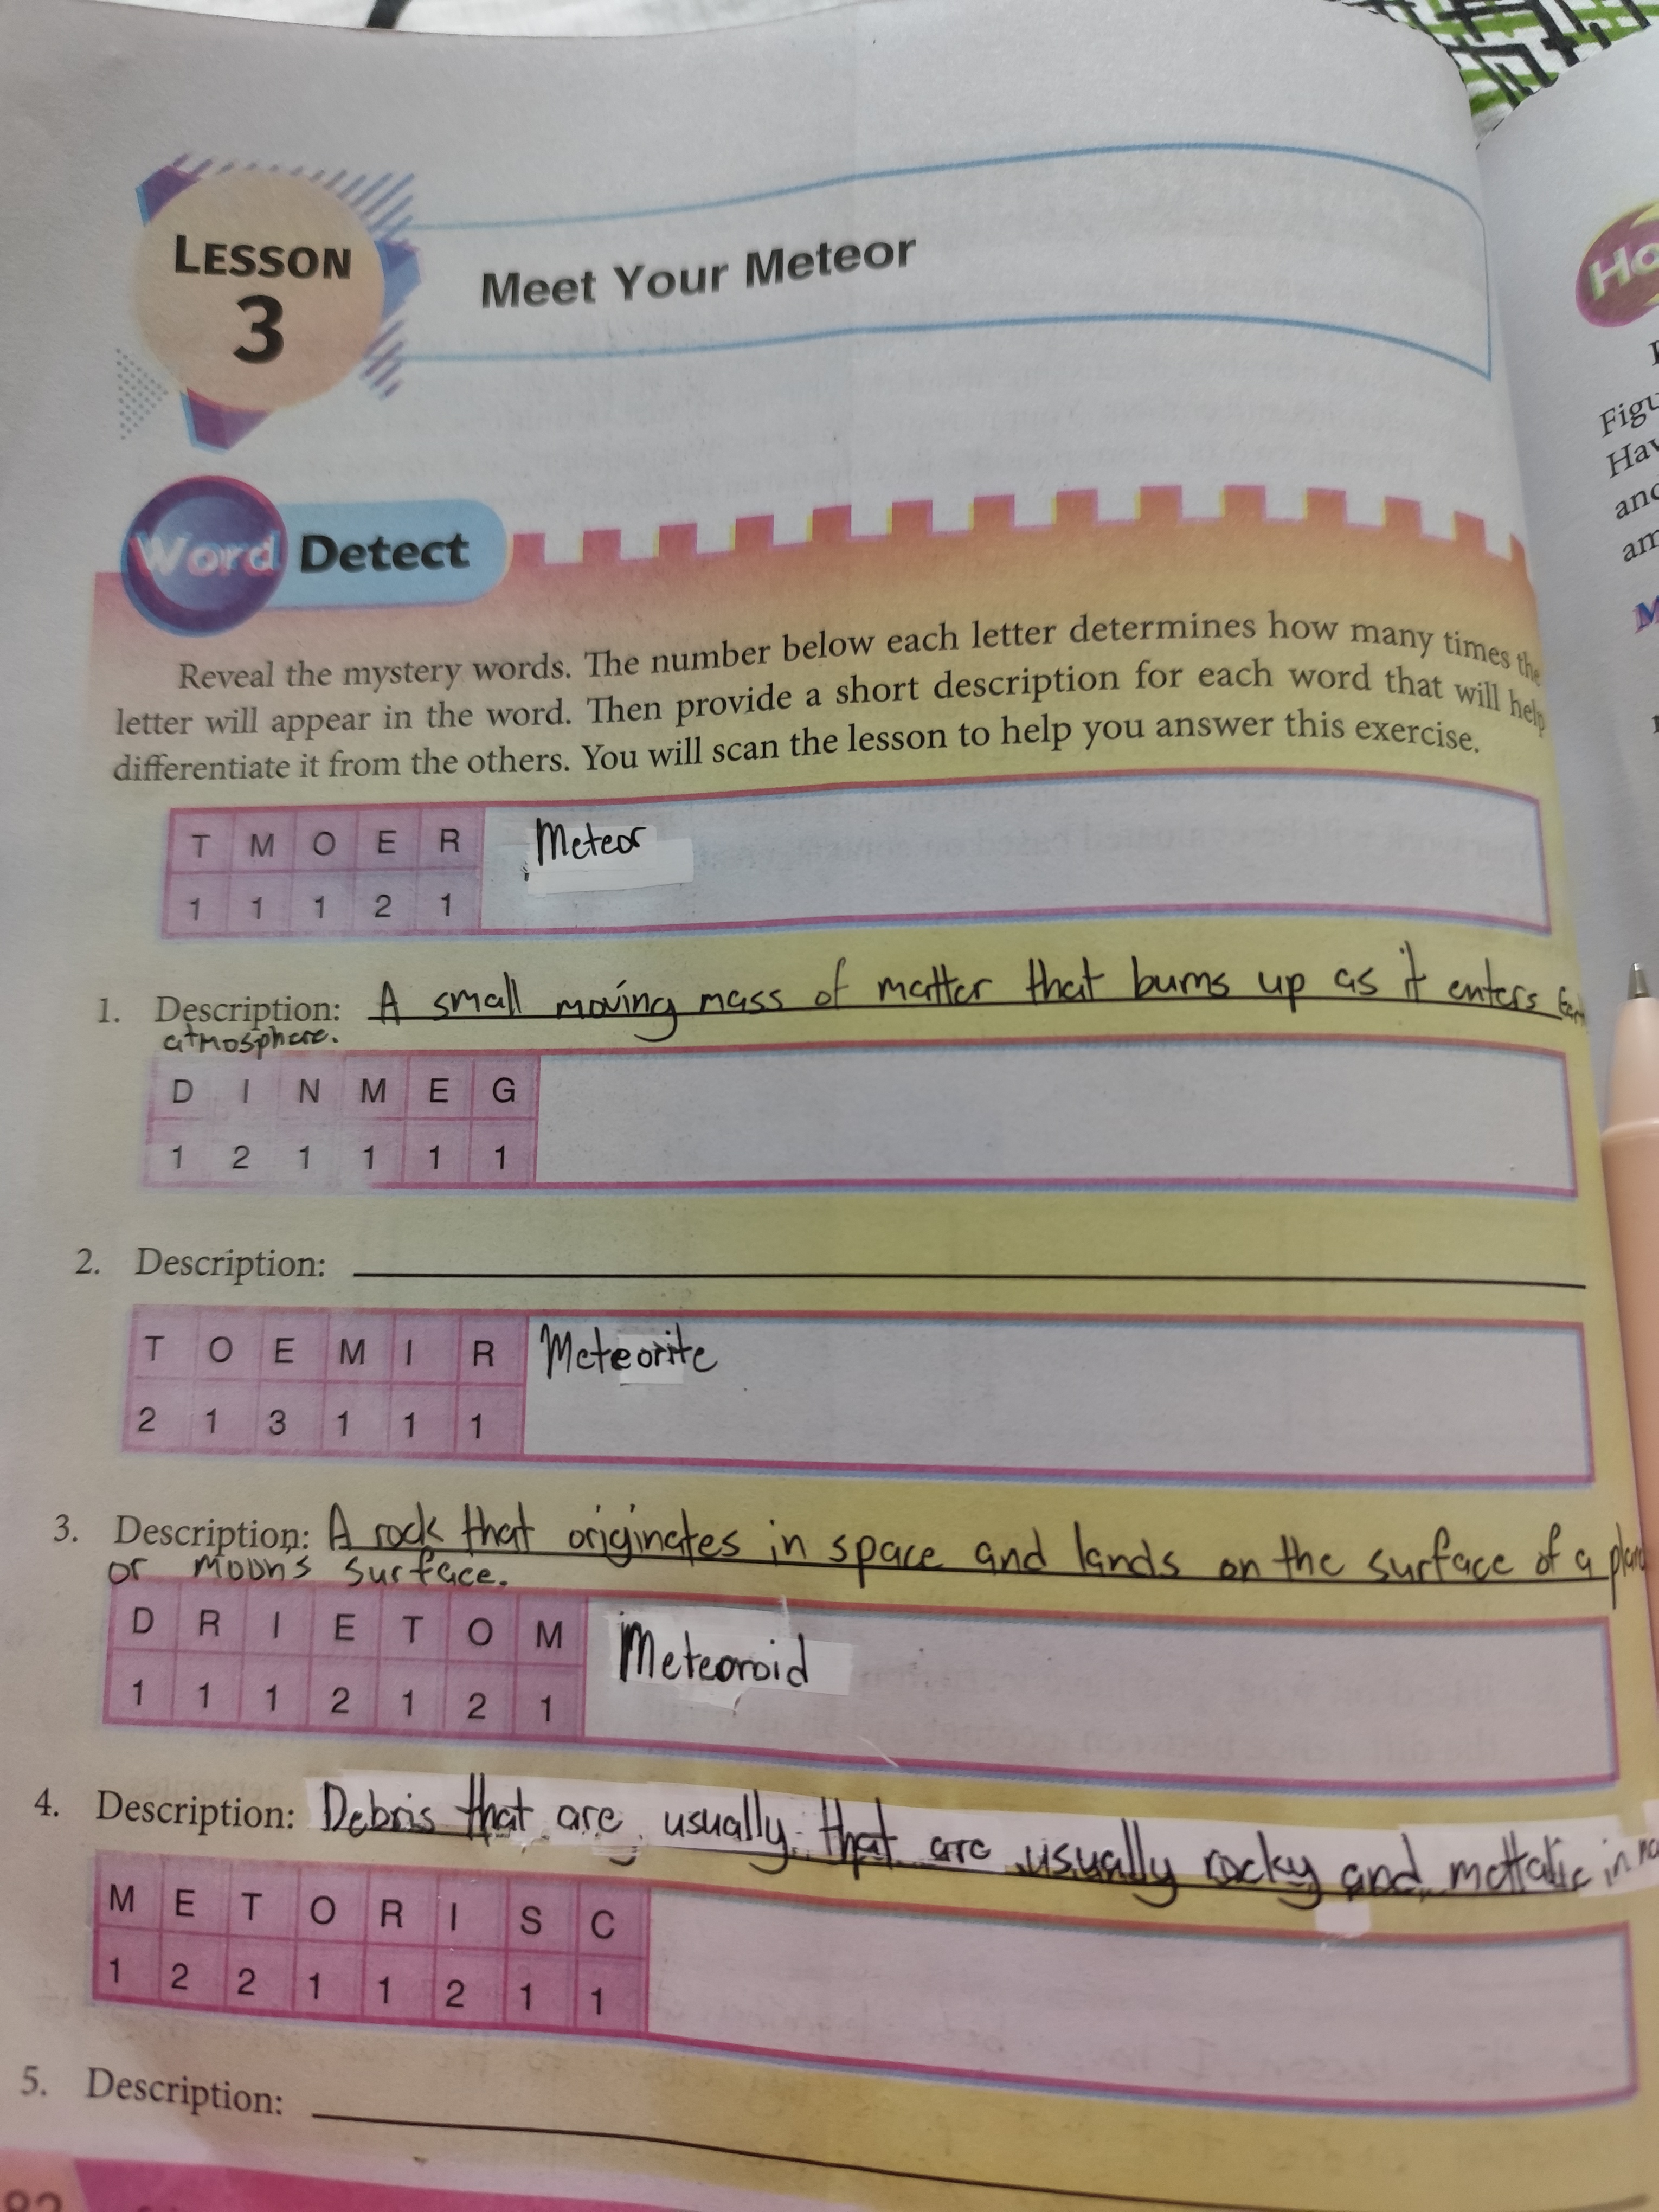 LESSON
3
Meet Your Meteor
Word Detect
Reveal the mystery words. The number below each letter determines how many times the
letter will appear in the word. Then provide a short description for each word that will help
differentiate it from the others. You will scan the lesson to help you answer this exercise.
T M O E R Meteor
1 1 1 2 1
1. Description: A small moving mass of matter that burns up as it enters
atmosphere.
D I N M E G
1 2 1 1 1 1
2. Description:
T O E M I R Meteorite
2 1 3 1 1 1
3. Description: A rock that originates in space and lands on the surface of a
or moon's surface.
D R I E T O M Meteoroid
1 1 1 2 1 2 1
4. Description: Debris that are usually that are usually rocky and mettalic in
M E T O R I S C
1 2 2 1 1 2 1 1
5. Description:
82
Ho
Figu
Hav
and
am
M